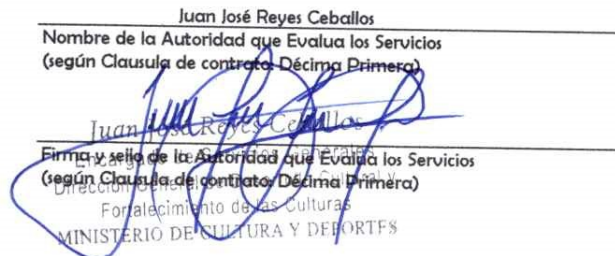 Juan José Reyes Ceballos
Nombre de la Autoridad que Evalua los Servicios
(según Clausula de contrato: Décima Primera)
Juan José Reyes Ceballos
Firma y sello de la Autoridad que Evalúa los Servicios
Encargado de Servicios Generales
(según Clausula de contrato: Décima Primera)
Dirección General de y
Fortalecimiento de las Culturas
MINISTERIO DE CULTURA Y DEPORTES